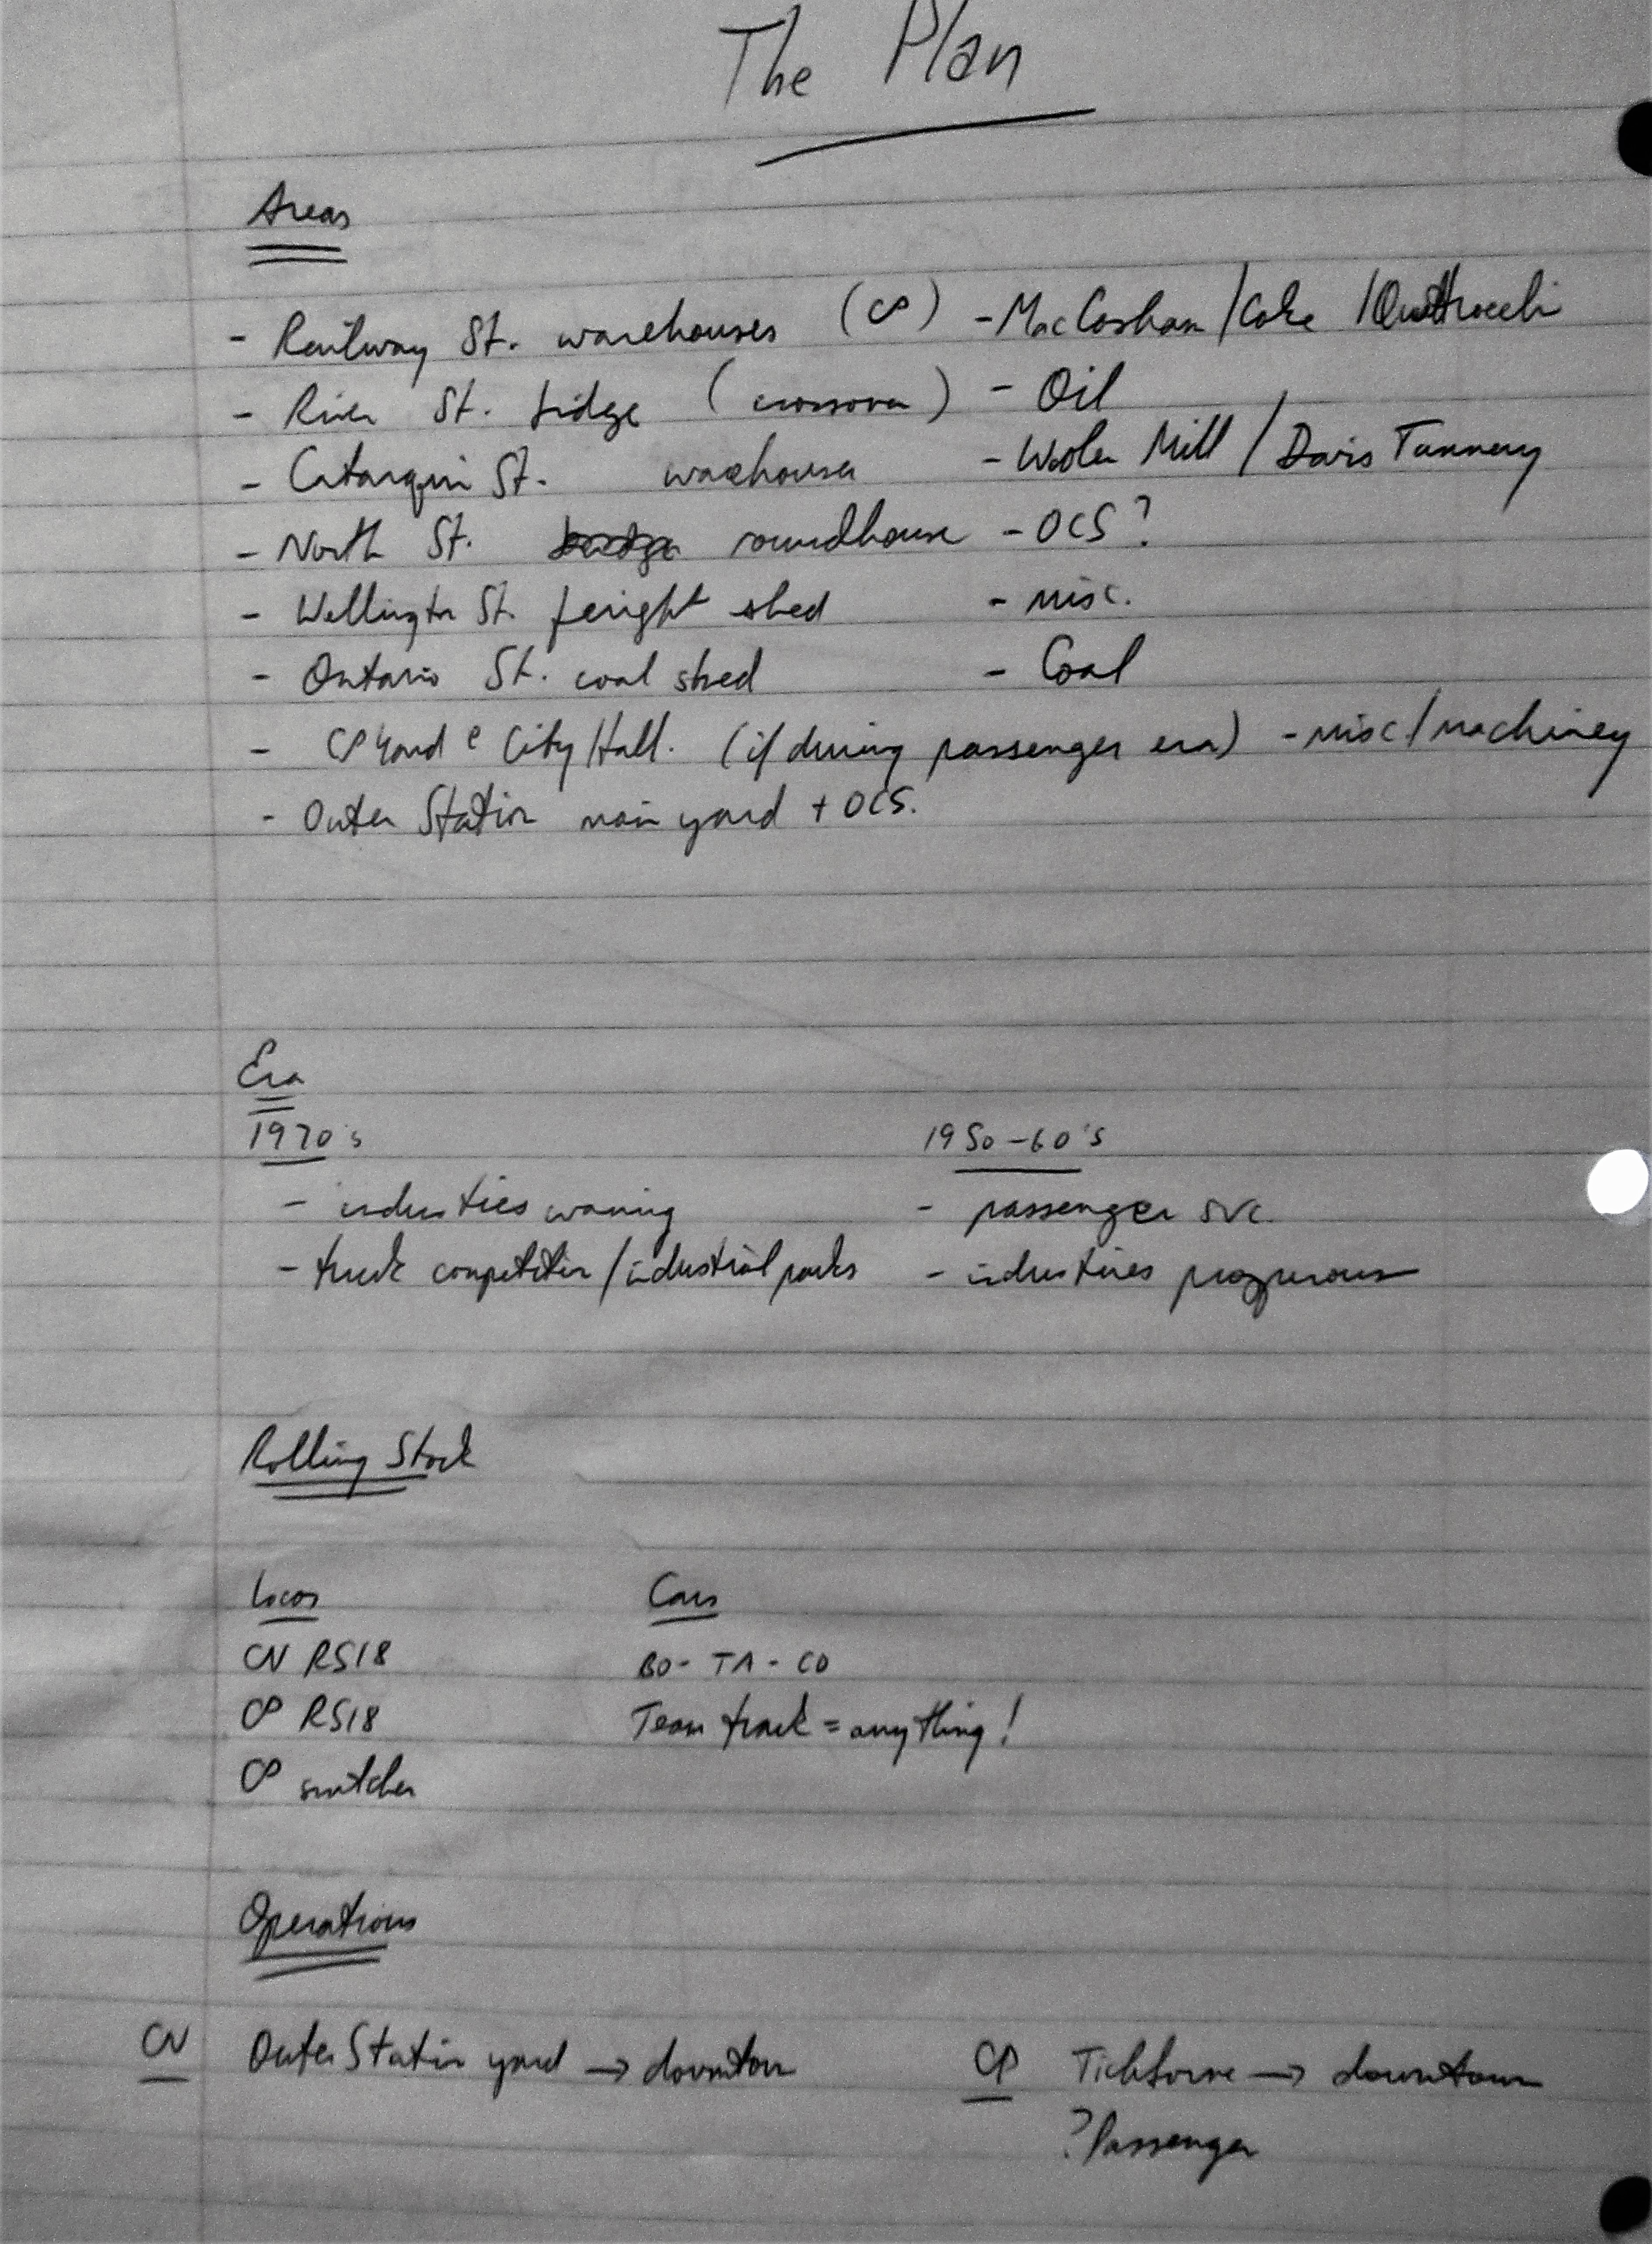 The Plan
Areas
- Railway St. warehouses (CP) - MacCosham / Coke / Quattrocchi
- River St. bridge (crossover) - Oil
- Cataraqui St. warehouses - Woolen Mill / Davis Tannery
- North St. roundhouse - OCS?
- Wellington St. freight shed - misc.
- Ontario St. coal shed - Coal
- CP Yard @ City Hall. (if during passenger era) - misc/machinery
- Outer Station main yard + OCS.
Era
1970's 1950-60's
- industries waning - passenger svc.
- truck competition / industrial parks - industries prosperous
Rolling Stock
Locos Cars
CN RS18 BO - TA - CO
CP RS18 Team track = anything!
CP switcher
Operations
CN Outer Station yard → downtown CP Tichborne → downtown
? Passenger